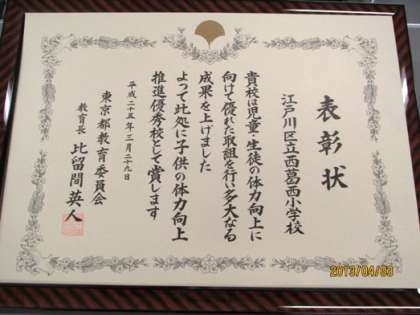 表彰状
江戸川区立西葛西小学校
貴校は児童・生徒の体力向上に
向けて優れた取組を行い多大なる
成果を上げました
よって此処に子供の体力向上
推進優秀校として賞します
平成二十五年三月二十九日
東京都教育委員会
教育長 比留間英人
2013/04/03